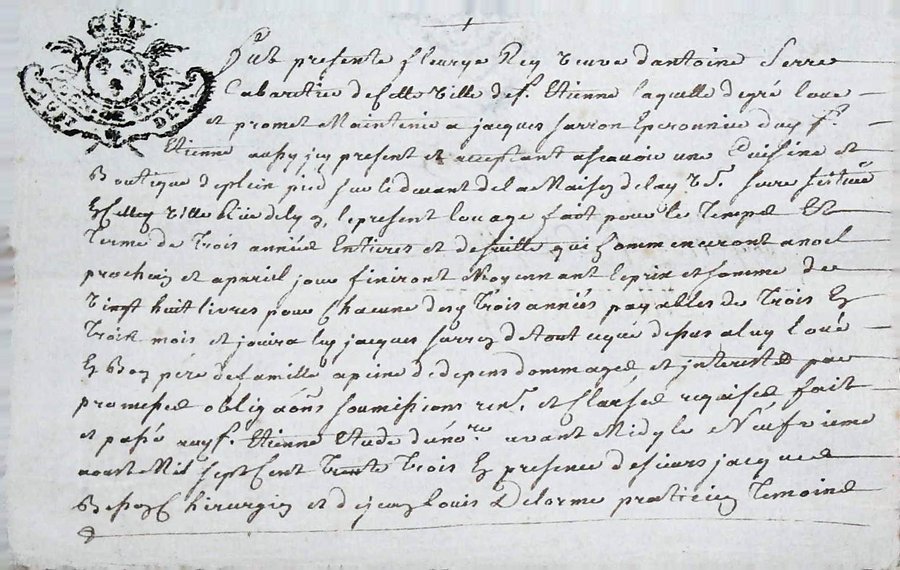 Fut presente fleurye Rey veuve d'antoine Serre
Cabaretier de cette ville de St. Etienne laquelle de gré loue
et promet Maintenir a jacques sarron Eperonnier dud St.
Etienne aussy icy present et acceptant ascavoir une Cuisine et
Boutique de plein pied sur le devant de la Maison de lad. Vve. serre scituée
ville Rüe de lyon, le present louage fait pour le Temps Et
Terme de Trois années Entieres et de suitte qui Commenceront a noel
prochain et a pareil jour finiront Moyennant le prix et somme de
Vingt huit livres pour Chacune desd Trois années payables de Trois En
Trois mois et jouira led jacques sarron de tout ce que dessus a luy loué
En Bon pere de famille a peine de depens dommages et interests par
promesses obligaõns soumissions ren. et Clauses requises, fait
et passé aud St. Etienne Etude du no.re avant Midy le Neufvieme
aoust Mil sept Cent Trente Trois En presence de sieurs jacques
Chirurgien et de jean louis Delorme praticien Temoins